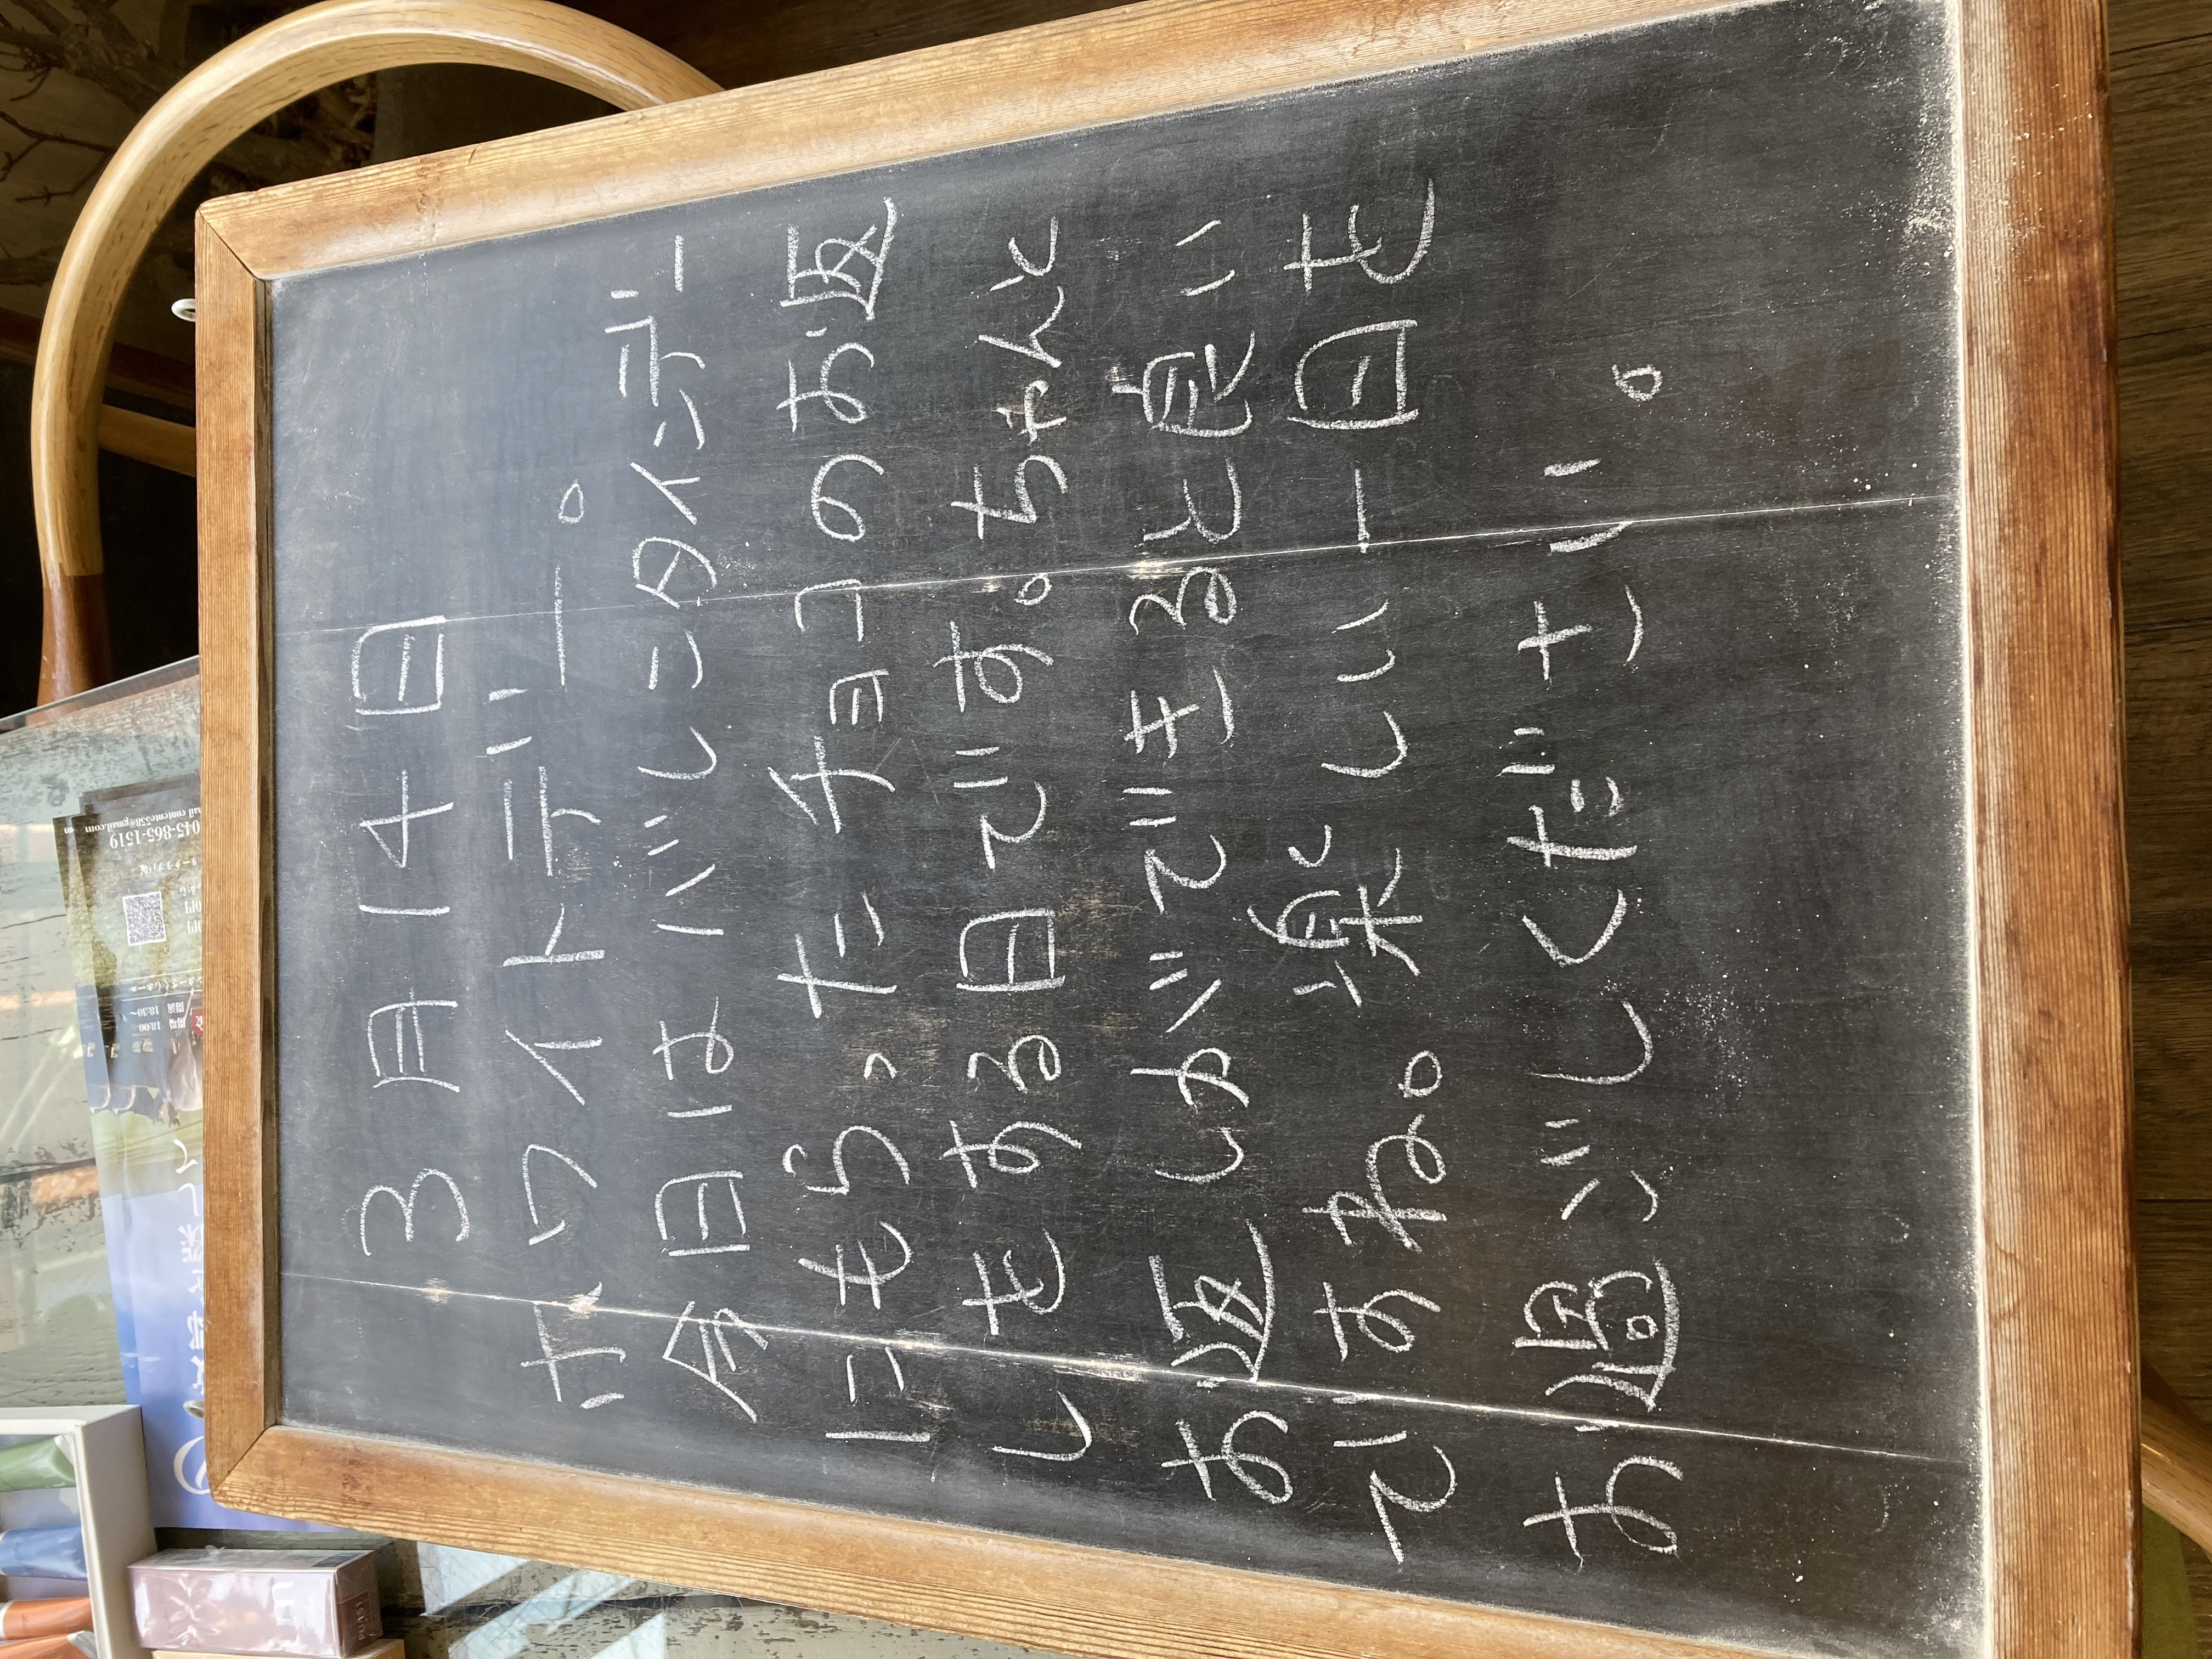 3月14日
ホワイトデー。
今日はバレンタインデー
にもらったチョコのお返
しをする日です。ちゃんと
お返しができると良い
ですね。楽しい一日を
お過ごしください。
045-865-1519